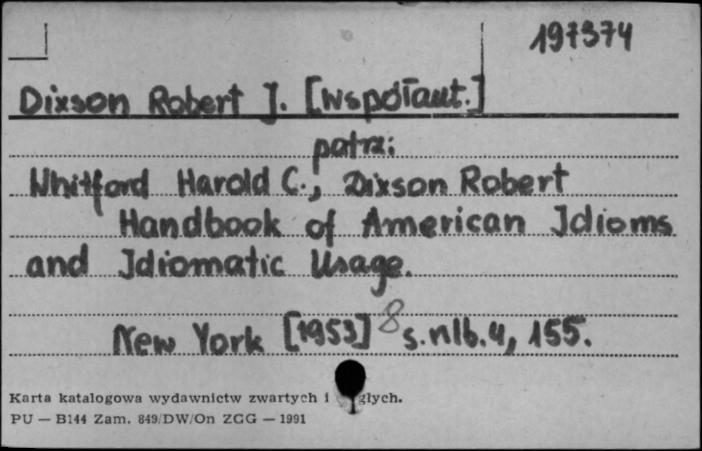 197374
Dixson Robert J. [współaut.]
patrz:
Whitford Harold C., Dixson Robert
Handbook of American Idioms
and Idiomatic Usage.
New York [1953] 8 s.nlb.4, 155.
Karta katalogowa wydawnictw zwartych i głych.
PU — B144 Zam. 849/DW/On ZGG — 1991